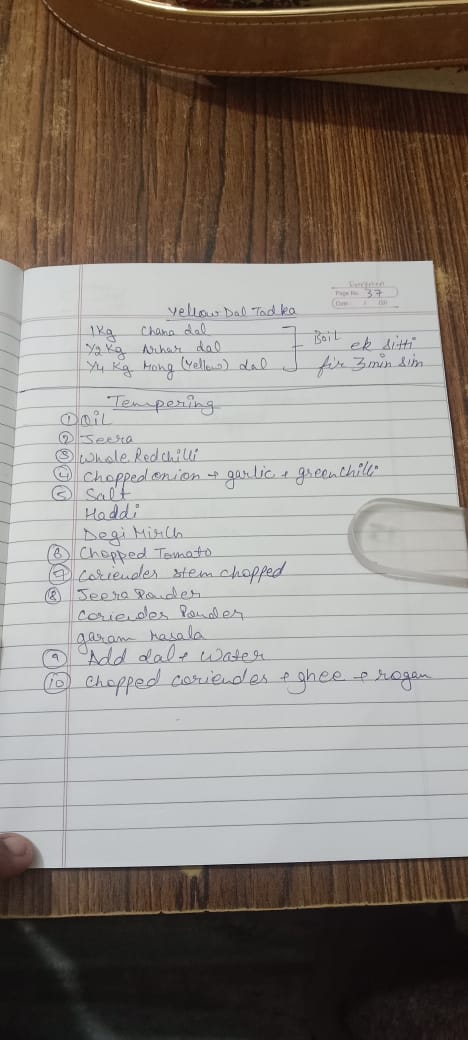 Evergreen
Page No. 37
Date / /20
Yellow Dal Tadka
1Kg Chana dal
1/2 Kg Arhar dal
1/4 Kg Mong (Yellow) dal
Boil ek sitti
fir 3 min sim
Tempering
① Oil
② Jeera
③ Whole Red chilli
④ Chopped onion + garlic + green chilli
⑤ Salt
Haddi
Degi Mirch
⑧ Chopped Tomato
⑦ Coriender stem chopped
⑧ Jeera Pouder
Coriender Pouder
garam Masala
⑨ Add dal + Water
⑩ Chopped coriender + ghee + rogan